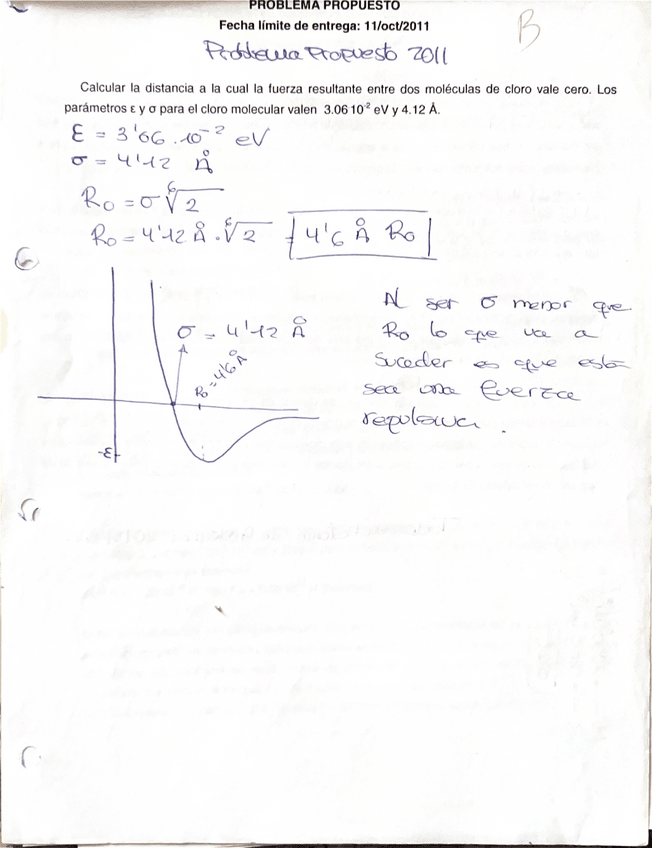 PROBLEMA PROPUESTO
Fecha límite de entrega: 11/oct/2011
B
Problema Propuesto 2011
Calcular la distancia a la cual la fuerza resultante entre dos moléculas de cloro vale cero. Los
parámetros ε y σ para el cloro molecular valen 3.06 10⁻² eV y 4.12 Å.
ε = 3'06 . 10⁻² eV
σ = 4'12 Å
R₀ = σ ⁶√2
R₀ = 4'12 Å . ⁶√2 = 4'6 Å R₀
Al ser σ menor que
R₀ lo que va a
suceder es que esta
sea una fuerza
repulsiva.
σ = 4'12 Å
R₀ = 4'6 Å
-ε